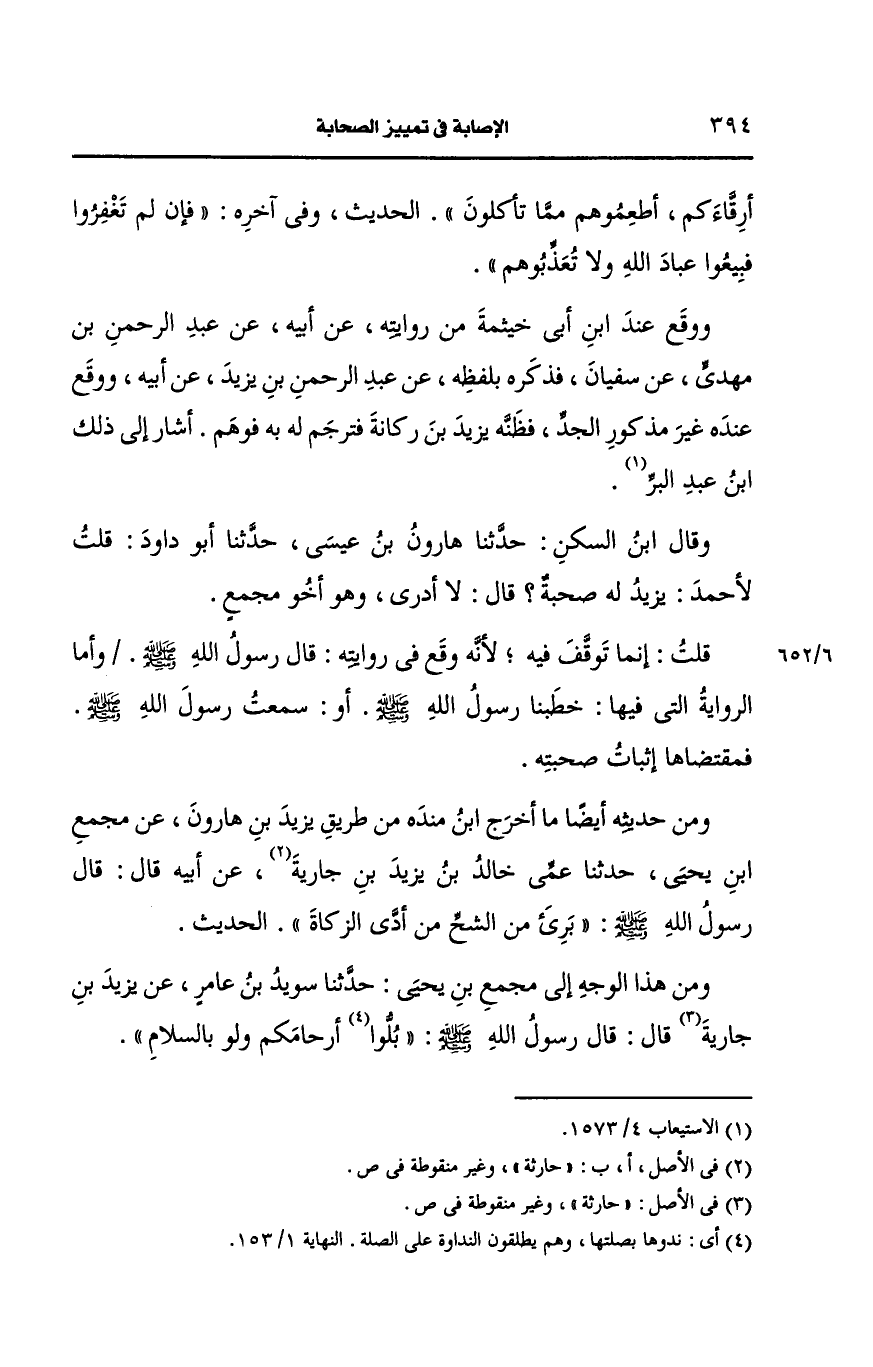 ٣٩٤ الإصابة فى تمييز الصحابة
أرِقَّاءَكم ، أطعِمُوهم ممَّا تأكلونَ » . الحديث ، وفى آخرِه : « فإن لم تَغْفِرُوا
فبِيعُوا عبادَ اللهِ ولا تُعَذِّبُوهم » .
ووقَع عندَ ابنِ أبى خيثمةَ من روايتِه ، عن أبيه ، عن عبدِ الرحمنِ بن
مهدىٍّ ، عن سفيانَ ، فذكَره بلفظِه ، عن عبدِ الرحمنِ بنِ يزيدَ ، عن أبيه ، ووقَع
عندَه غيرَ مذكورِ الجدِّ ، فظَنَّه يزيدَ بنَ ركانةَ فترجَم له به فوهَم . أشار إلى ذلك
ابنُ عبدِ البرِّ(١) .
وقال ابنُ السكنِ : حدَّثنا هارونُ بنُ عيسَى ، حدَّثنا أبو داودَ : قلتُ
لأحمدَ : يزيدُ له صحبةٌ ؟ قال : لا أدرى ، وهو أخُو مجمعٍ .
قلتُ : إنما تَوقَّفَ فيه ؛ لأنَّه وقَع فى روايتِه : قال رسولُ اللهِ ﷺ . / وأما ٦/ ٦٥٢
الروايةُ التى فيها : خطَبنا رسولُ اللهِ ﷺ . أو : سمعتُ رسولَ اللهِ ﷺ .
فمقتضاها إثباتُ صحبتِه .
ومن حديثِه أيضًا ما أخرَج ابنُ مندَه من طريقِ يزيدَ بنِ هارونَ ، عن مجمعِ
ابنِ يحيَى ، حدثنا عمِّى خالدُ بنُ يزيدَ بنِ جاريةَ(٢) ، عن أبيه قال : قال
رسولُ اللهِ ﷺ : « بَرِئَ من الشحِّ من أدَّى الزكاةَ » . الحديث .
ومن هذا الوجهِ إلى مجمعِ بنِ يحيَى : حدَّثنا سويدُ بنُ عامرٍ ، عن يزيدَ بنِ
جاريةَ(٣) قال : قال رسولُ اللهِ ﷺ : « بُلُّوا(٤) أرحامَكم ولو بالسلامِ » .
(١) الاستيعاب ٤/ ١٥٧٣.
(٢) فى الأصل ، أ ، ب : « حارثة » ، وغير منقوطة فى ص .
(٣) فى الأصل : « حارثة » ، وغير منقوطة فى ص .
(٤) أى : ندوها بصلتها ، وهم يطلقون النداوة على الصلة . النهاية ١/ ١٥٣.